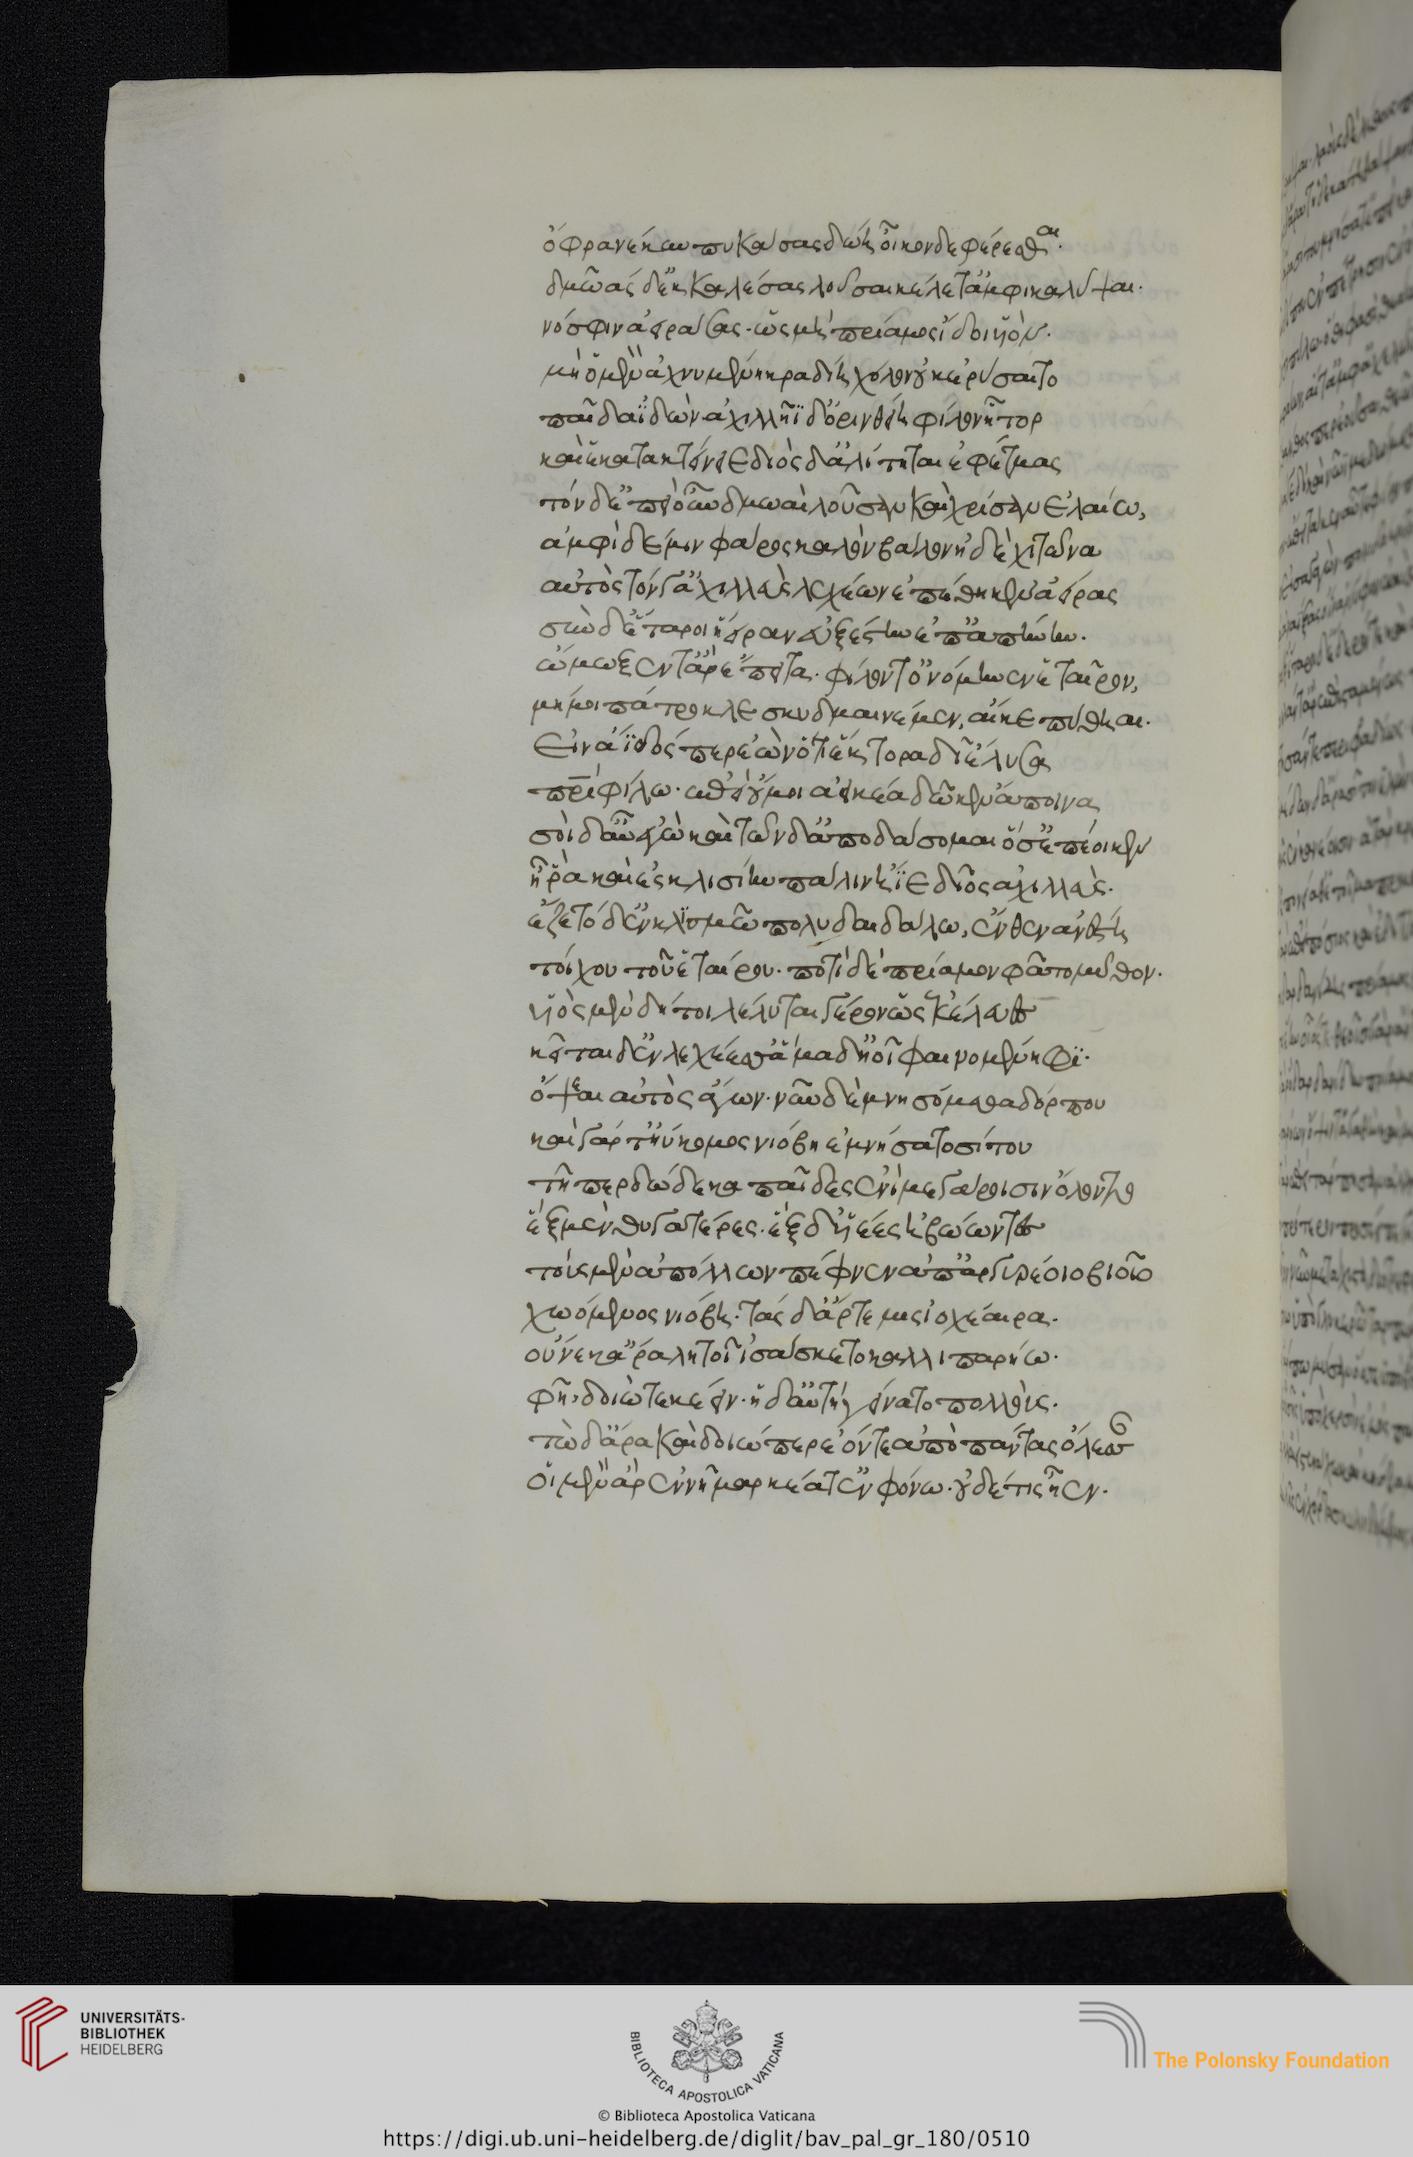 ὄφρα νέκυν πυκάσας δώῃ οἶκον δὲ φέρεσθαι·
δμωὰς δ' ἐκκαλέσας λοῦσαι κέλετ' ἀμφί τ' ἀλεῖψαι·
νόσφιν ἀειράσας· ὡς μὴ πρίαμος ἴδοι υἱόν·
μὴ ὃ μὲν ἀχνυμένη κραδίη χόλον οὐκ ἐρύσαιτο
παῖδα ἰδών· ἀχιλλῆϊ δ' ὀρινθείη φίλον ἦτορ
καί ἑ κατακτείνειε διὸς δ' ἀλίτηται ἐφετμάς
τὸν δ' ἐπεὶ οὖν δμωαὶ λοῦσαν καὶ χρίσαν ἐλαίω,
ἀμφὶ δέ μιν φᾶρος καλὸν βάλον ἠδὲ χιτῶνα
αὐτὸς τόν γ' ἀχιλλεὺς λεχέων ἐπέθηκεν ἀείρας
σὺν δ' ἕταροι ἤειραν ἐυξέστην ἐπ' ἀπήνην·
ὤμωξεν τ' ἄρ' ἔπειτα· φίλον τ' ὀνόμηνεν ἑταῖρον,
μή μοι πάτροκλε σκυδμαινέμεν, αἴ κε πύθηαι·
εἰν ἄϊδός περ ἐὼν ὅτι ἕκτορα δῖον ἔλυσα
πατρὶ φίλω· ἐπεὶ οὔ μοι ἀεικέα δῶκεν ἄποινα
σοὶ δ' αὖ ἐγὼ καὶ τῶνδ' ἀποδάσομαι ὅσσ' ἐπέοικεν
ἦ ῥα καὶ ἐς κλισίην πάλιν ἤϊε δῖος ἀχιλλεύς·
ἕζετο δ' ἐν κλισμῶ πολυδαιδάλω, ἔνθεν ἀνέστη
τοίχου τοῦ ἑτέρου· ποτὶ δὲ πρίαμον φάτο μῦθον·
υἱὸς μὲν δή τοι λέλυται γέρον ὡς ἐκέλευες
κεῖται δ' ἐν λεχέεσσ' ἅμα δ' ἠοῖ φαινομένηφι·
ὄψεαι αὐτὸς ἄγων· νῦν δὲ μνησόμεθα δόρπου
καὶ γάρ τ' ἠΰκομος νιόβη ἐμνήσατο σίτου
τῆ περ δώδεκα παῖδες ἐνὶ μεγάροισιν ὄλοντο
ἓξ μὲν θυγατέρες· ἓξ δ' υἱέες ἡβώωντες
τοὺς μὲν ἀπόλλων πέφνεν ἀπ' ἀργυρέοιο βιοῖο
χωόμενος νιόβη· τὰς δ' ἄρτεμις ἰοχέαιρα·
οὕνεκ' ἄρα λητοῖ ἰσάσκετο καλλιπαρήω·
φῆ δοιὼ τεκέειν· ἡ δ' αὐτὴ γείνατο πολλούς·
τὼ δ' ἄρα καὶ δοιώ περ ἐόντε ἀπὸ πάντας ὄλεσσαν
οἱ μὲν ἄρ' ἐννῆμαρ κέατ' ἐν φόνω· οὐδέ τις ἦεν·
UNIVERSITÄTS-
BIBLIOTHEK
HEIDELBERG
BIBLIOTECA APOSTOLICA VATICANA
The Polonsky Foundation
© Biblioteca Apostolica Vaticana
https://digi.ub.uni-heidelberg.de/diglit/bav_pal_gr_180/0510